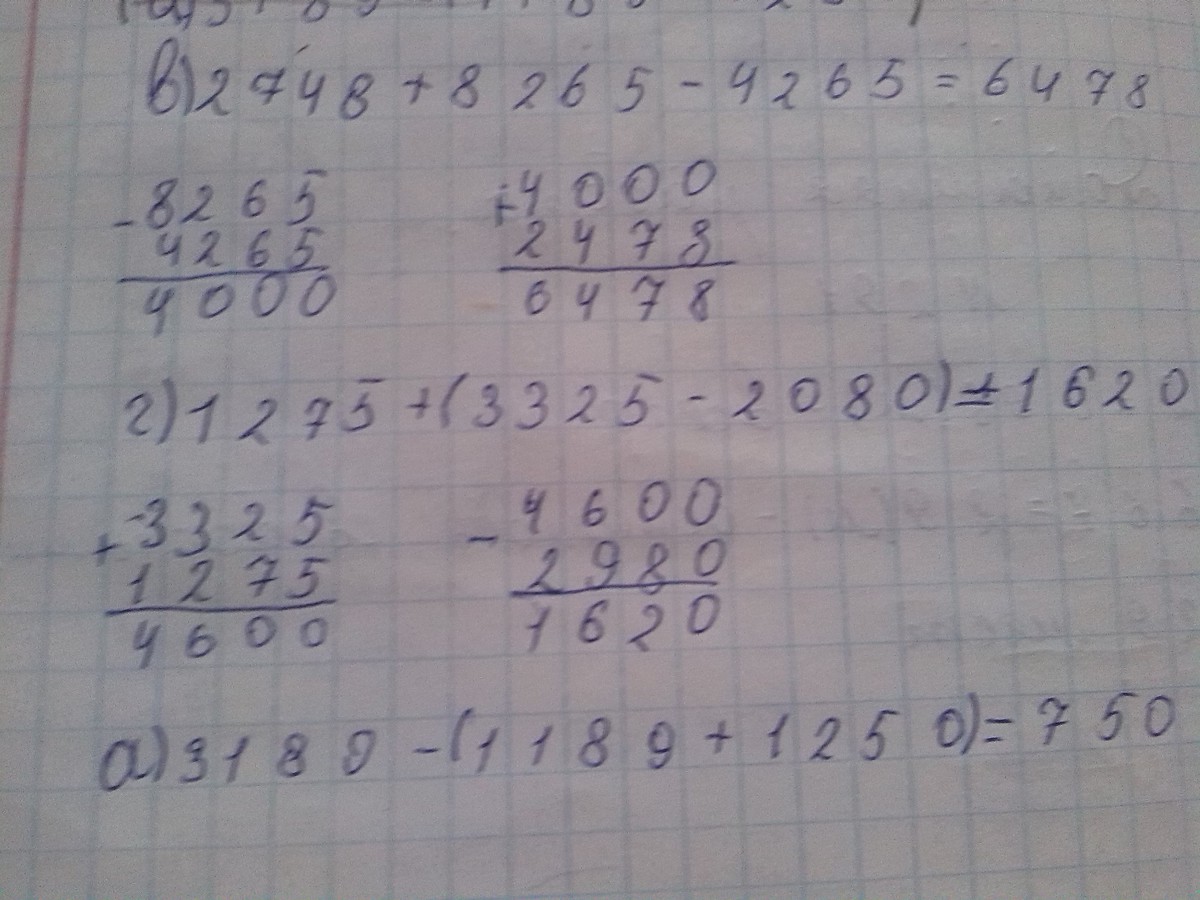 в) 2748 + 8265 - 4265 = 6478
- 8265
4265
4000
+ 4000
2478
6478
г) 1275 + (3325 - 2080) = 1620
+ 3325
1275
4600
- 4600
2980
1620
а) 3189 - (1189 + 1250) = 750